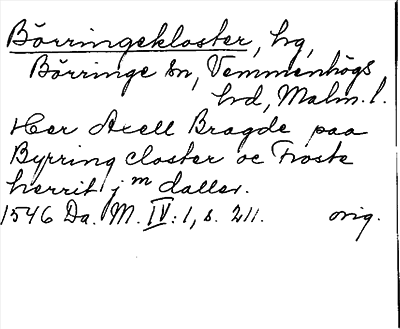 Börringekloster, hg,
Börringe sn, Vemmenhögs
hd, Malm. l.
Her Axell Bragde paa
Byrring closter oc Froste
herrit j m daller.
1546 Da. M. IV: 1, s. 211. orig.